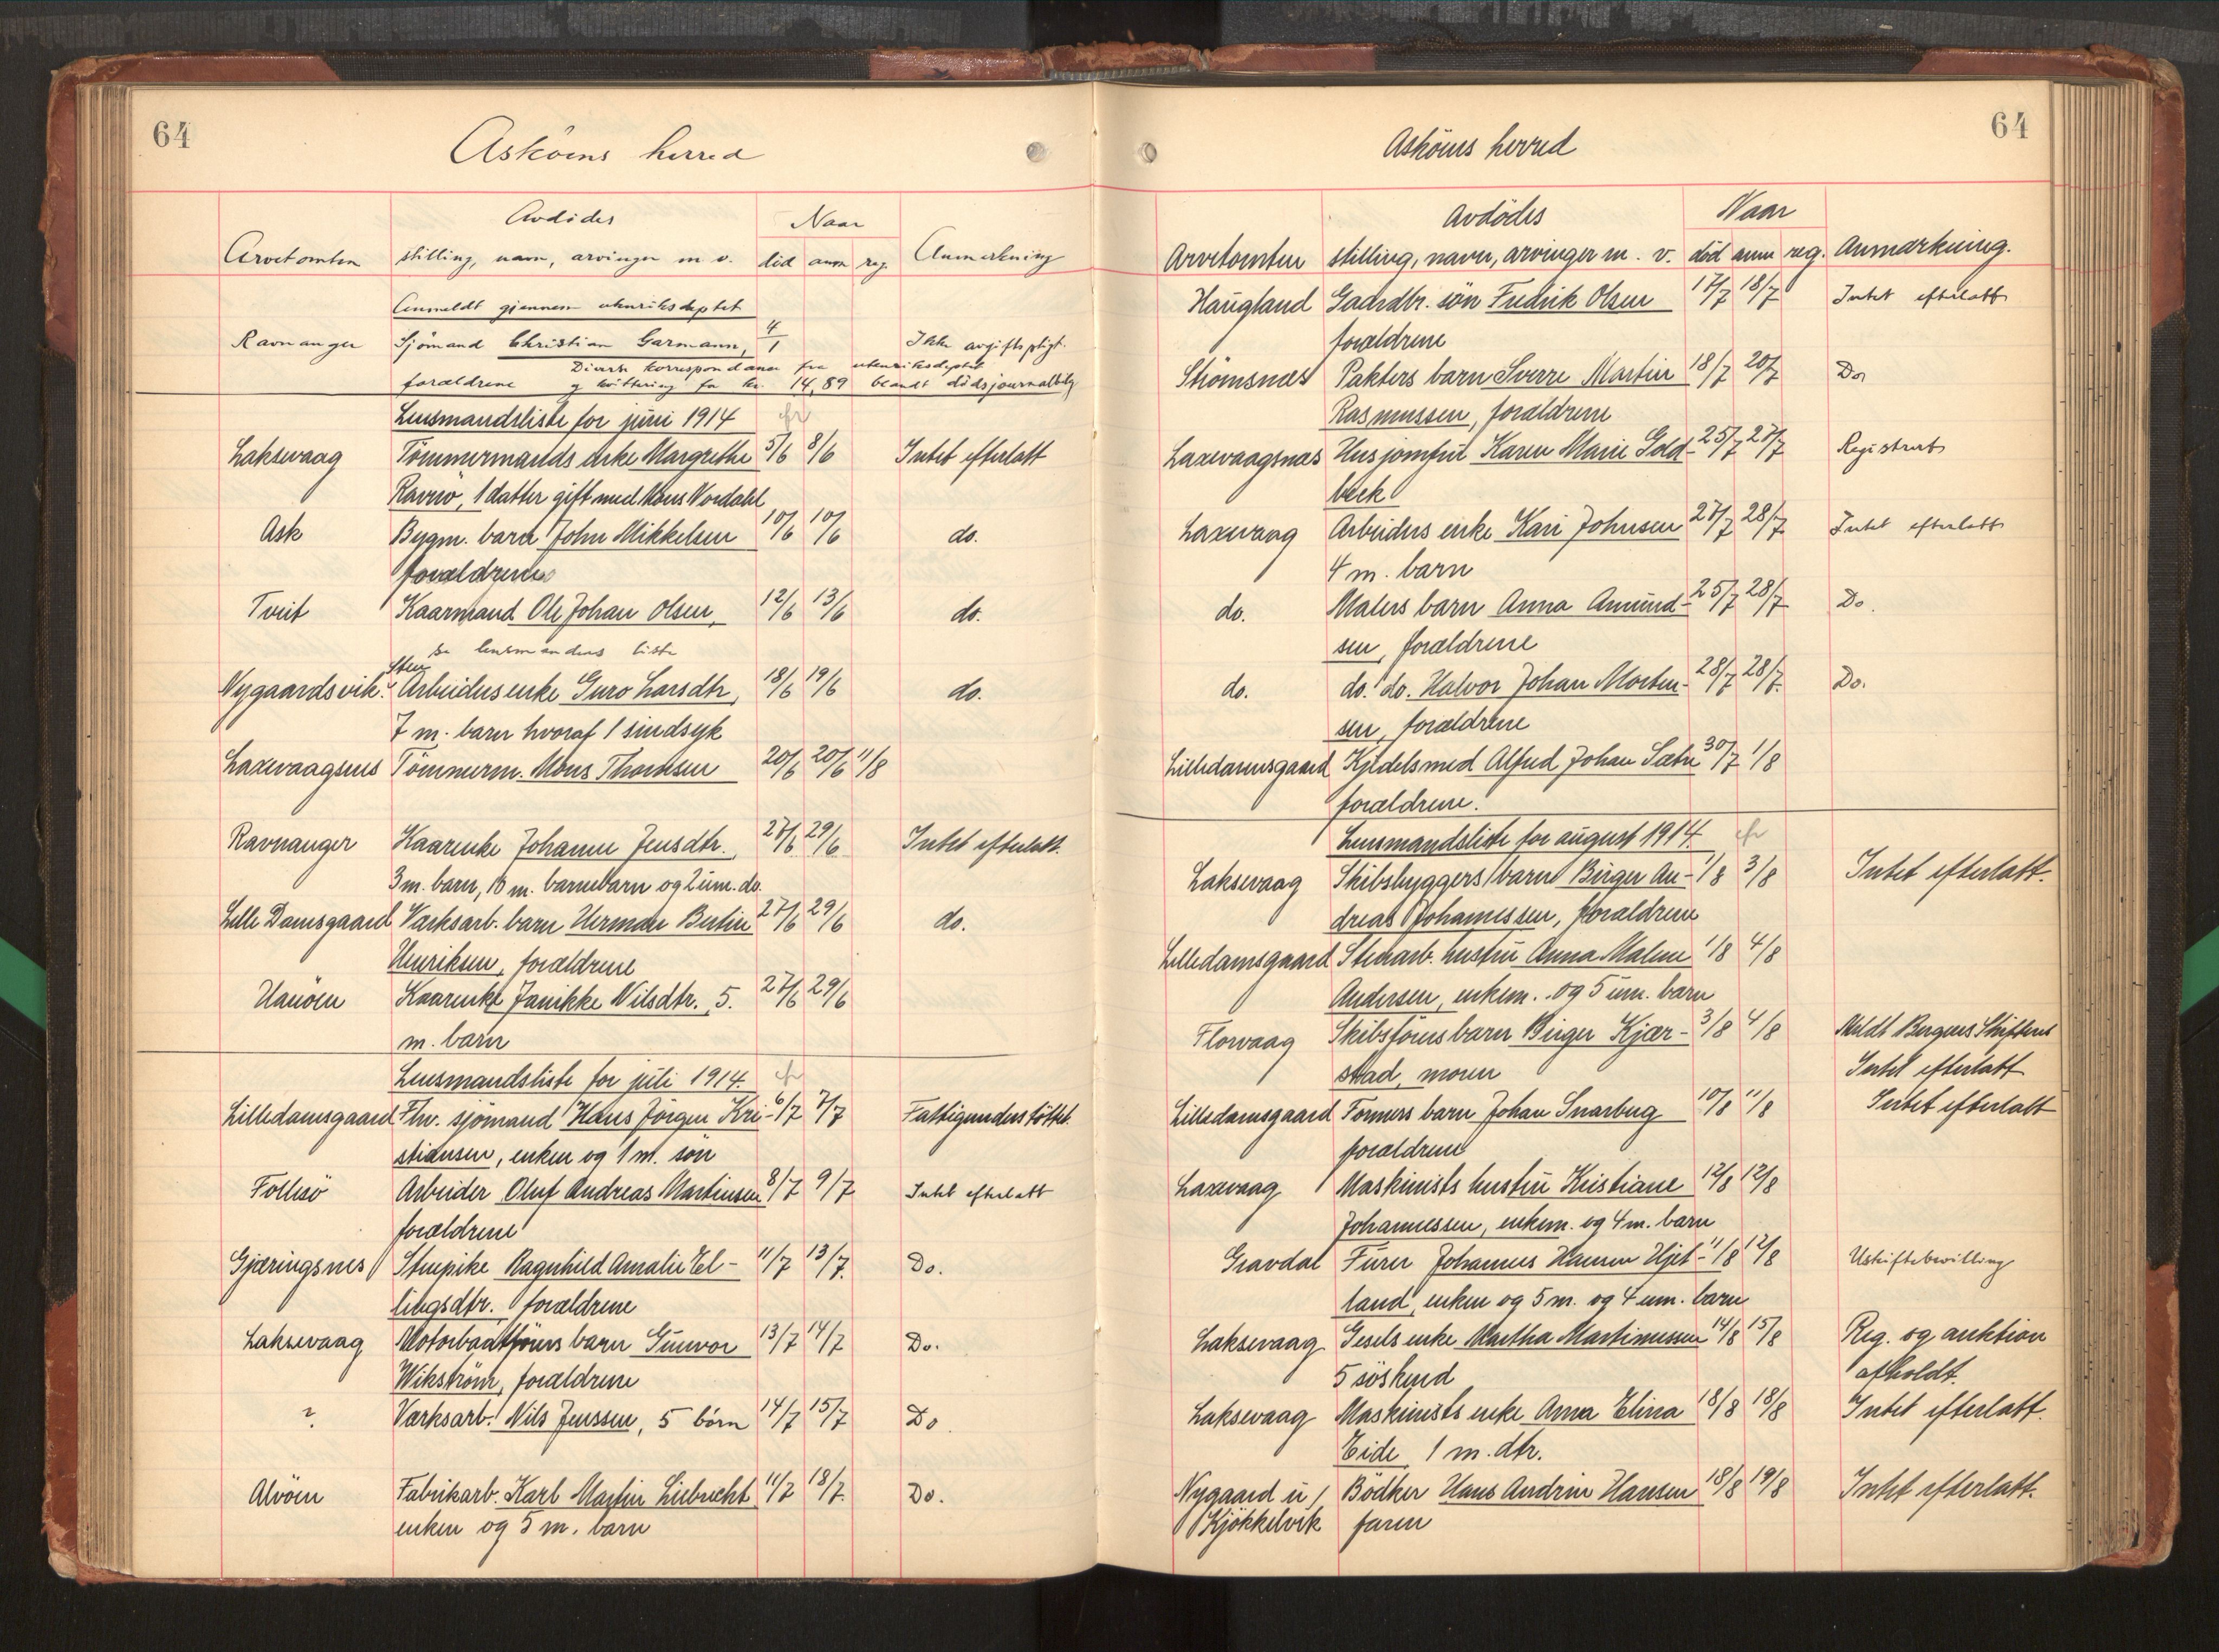 64
Asköens herred
Avdödes
Naar
Arvetomten stilling, navn, arvinger m v. död anm reg. Anmerkning
Anmeldt gjennem utenriksdeptet
Ravnanger Sjömand Christian Garmann, 4/1 Ikke avgiftspligt.
Diverse korrespondance fra utenriksdeptet
forældrene og kvittering for kr. 14,89 blandt dödsjournalbilg
Lensmandsliste for juni 1914
Laksevaag Tömmermands enke Margrethe 5/6 8/6 Intet efterlatt
Ravnö, 1 datter gift med Mons Vordahl
Ask Bygm. barn John Mikkelsen 10/6 10/6 do.
forældrene
Tveit Kaarmand Ole Johan Olsen, 12/6 13/6 do.
se lensmandens liste
Nygaardsvik. Arbeidersenke Guro Larsdtr, 18/6 19/6 do.
7 m. barn hvoraf 1 sindsyk
Laxevaagsnes Tömmerm. Mons Thomsen 20/6 20/6 11/8
Ravnanger Kaarenke Johanne Jensdtr. 27/6 29/6 Intet efterlatt.
3 m. barn, 10 m. barnebarn og 2 um. do.
Lille Damsgaard Værksarb. barn Herman Bertin 27/6 29/6 do.
Henriksen, forældrene
Hanöen Kaarenke Janikke Nilsdtr. 5. 27/6 29/6
m. barn
Lensmandsliste for juli 1914.
Lilledamsgaard Fhv. sjömand Hans Jörgen Kri- 6/7 7/7 Fattigunderstöttet.
stiansen, enken og 1 m. sön
Follesö Arbeider Oluf Andreas Martinsen 8/7 9/7 Intet efterlatt
forældrene
Gjæringsnes Stuepike Ragnhild Amalie El- 11/7 13/7. Do.
lingsdtr. forældrene
Laksevaag Motorbaatförers barn Gunvor 13/7 14/7 Do.
Wikström, forældrene
? Værksarb. Nils Jenssen, 5 börn 14/7 15/7 Do
Alvöen Fabrikarb. Karl Martin Liebrecht 11/7 18/7. Do.
enken og 5 m. barn
64
Asköens herred
Avdödes
Naar
Arvetomten stilling, navn, arvinger m. v. död anm reg. Anmærkning.
Haugland Gaardbr. sön Fredrik Olsen 17/7 18/7 Intet efterlatt
forældrene
Strömsnæs Pakters barn Sverre Martin 18/7 20/7 Do
Rasmussen, forældrene
Laxevaagsnæs Husjomfru Karen Marie Gold- 25/7 27/7 Registrert
beck
Laxevaag Arbeiders enke Kari Johnsen 27/7 28/7 Intet efterlatt
4 m. barn
do. Malers barn Anna Amund- 25/7 28/7 Do.
sen, forældrene
do. do. do. Halvor Johan Morten- 28/7 28/7. Do.
sen, forældrene
Lilledamsgaard Kjedelsmed Alfred Johan Sætre 30/7 1/8
forældrene.
Lensmandsliste for august 1914.
Laksevaag Skibsbyggers barn Birger An- 1/8 3/8 Intet efterlatt.
dreas Johannessen, forældrene
Lilledamsgaard Stenarb. hustru Anna Malene 1/8 4/8
Andersen, enkem. og 5 um. barn
Florvaag Skibsförers barn Birger Kjær- 3/8 4/8 Meldt Bergens Skifteret
stad, moren Intet efterlatt
Lilledamsgaard Formers barn Johan Snarberg 10/8 11/8 Intet efterlatt
forældrene
Laxevaag Maskinists hustru Kristiane 12/8 12/8
Johannessen, enkem. og 4 m. barn
Gravdal Furer Johannes Hansen Hjet- 11/8 12/8 Uskiftebevilling
land, enken og 5 m. og 4 um. barn
Laksevaag Gesels enke Martha Martinussen 14/8 15/8 Reg. og auktion
5 söskend afholdt.
Laksevaag Maskinists enke Anna Elina 18/8 18/8 Intet efterlatt.
Eide 1 m. dtr.
Nygaard u/ Bödker Hans Andrin Hansen 18/8 19/8 Intet efterlatt.
Kjökkelvik faren